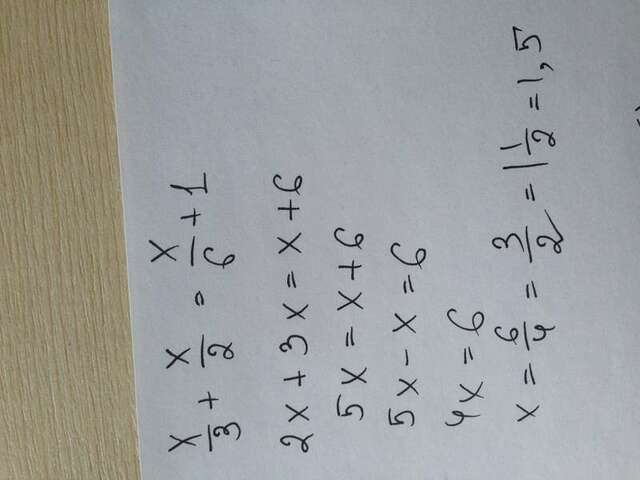 x/3 + x/2 = x/6 + 1
2x + 3x = x + 6
5x = x + 6
5x - x = 6
4x = 6
x = 6/4 = 3/2 = 1 1/2 = 1,5